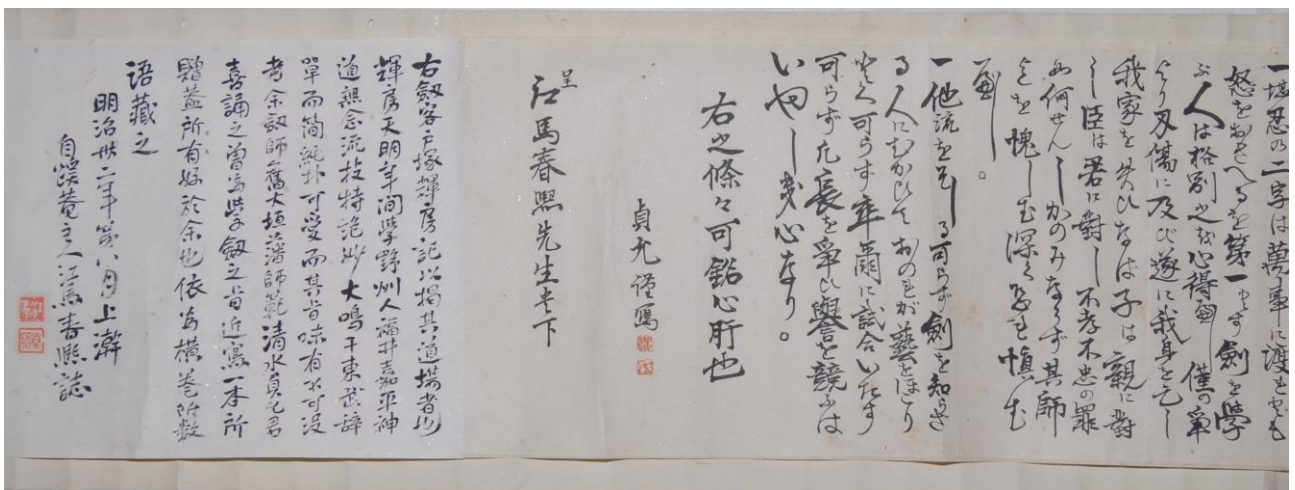 一堪忍の二字は萬事に渡るとも
怒をおさへるを第一とす劍を學
ぶ人は格別之を心得可し僅の爭
より刃傷に及び遂に我身を亡し
我家を失ひなば子は親に對
し臣は君に對し不孝不忠の罪
如何せんしかのみならず其師
を愧しむ深く是を慎む
可し。
一他流をそしる可らず劍を知らざ
る人にむかひておのれが藝をほこり
とく可らす卒爾に試合いたす
可らず凡長を爭ひ譽を競ふは
いやしき心なり。
右之條々可銘心肝也
貞允謹寫
呈
江馬春熙先生坐下
右劔客戸塚輝房記以掲其道場者也
輝房天明年間學野州人福井嘉平神
道無念流技特絶妙大鳴于東武辞
單而簡純朴可愛而其旨味有不可没
者余劔師舊大垣藩師範清水貞允君
喜誦之曽為學劔之旨近寫一本所
贈蓋所有好於余也依為横巻附数
語藏之
明治卅二年第八月上澣
自菴主人江馬春熙誌